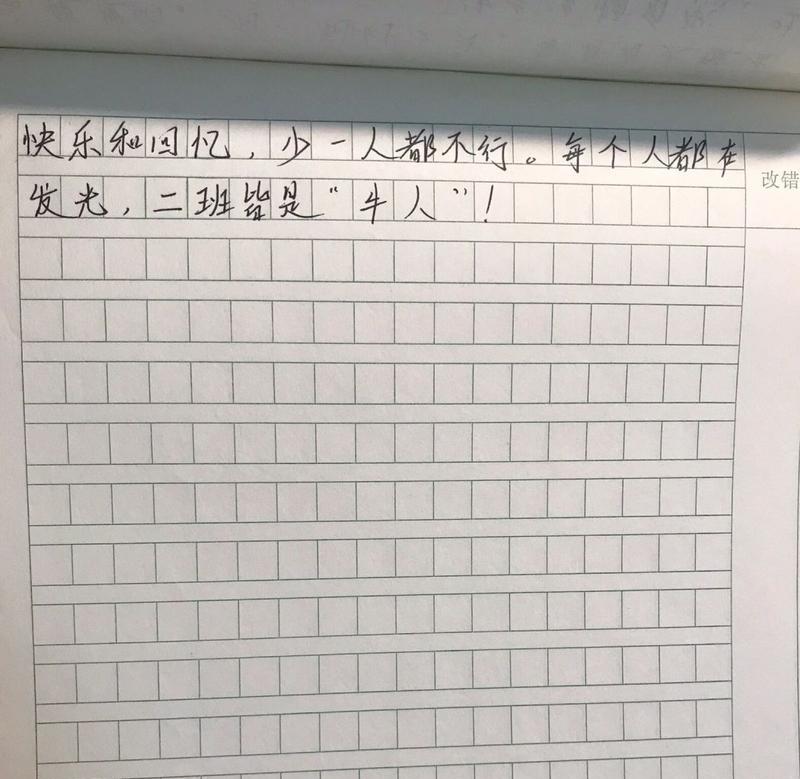 快乐和回忆，少一人都不行。每个人都在
改错
发光，二班皆是“牛人”！